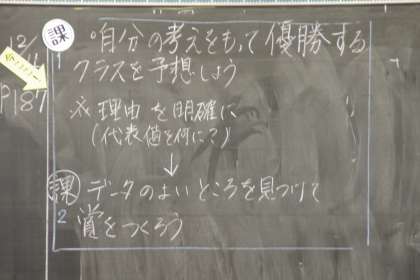 12/
P187
課 自分の考えをもって優勝する
クラスを予想しよう
※理由を明確に
(代表値を何にて)
↓
課2 データのよいところを見つけて
賞をつくろう